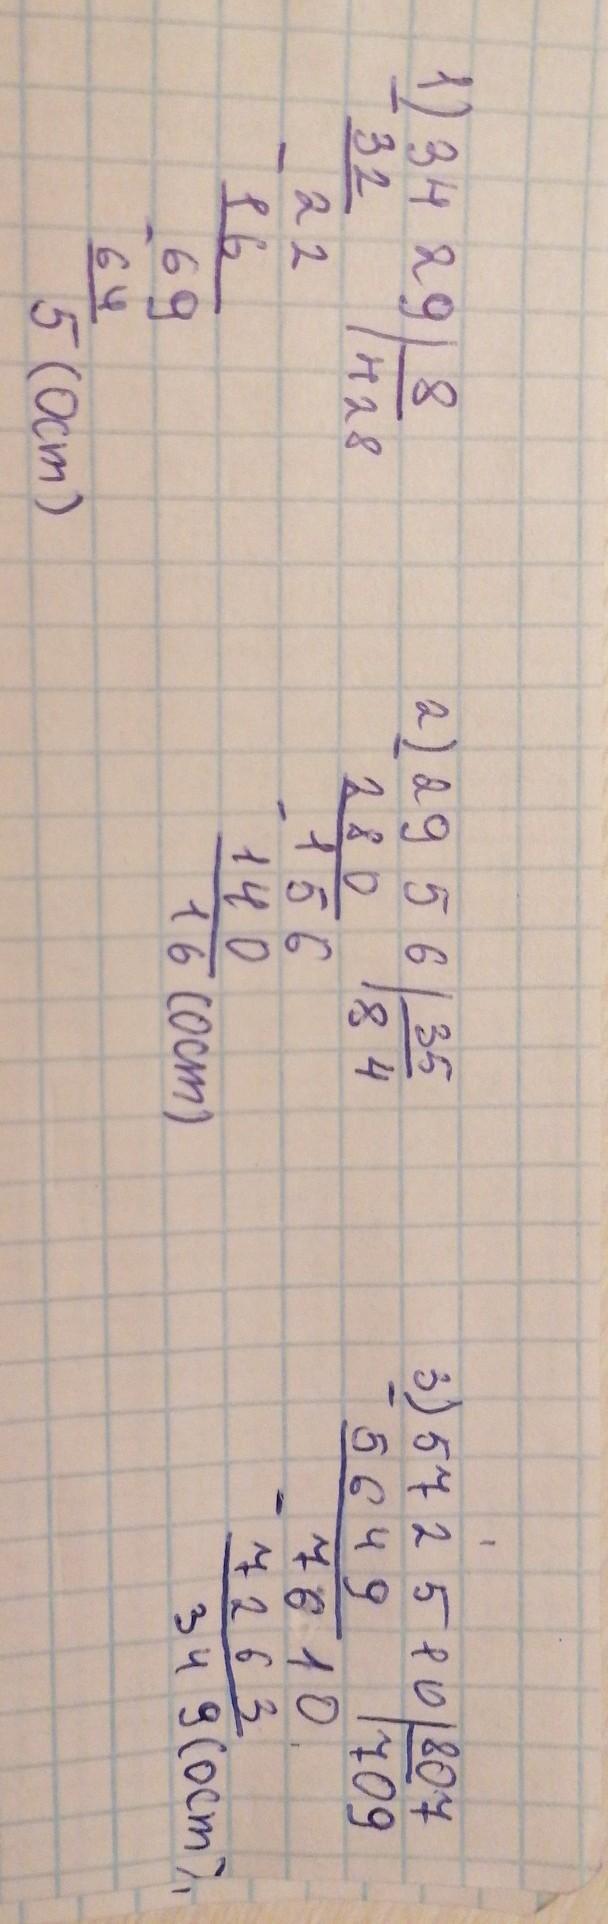 1) 3429 | 8
- 32 | 428
- 22
16
- 69
64
5 (ост)
2) 2956 | 35
- 280 | 84
- 156
140
16 (ост)
3) 572510 | 807
- 5649 | 709
- 7610
7263
349 (ост),